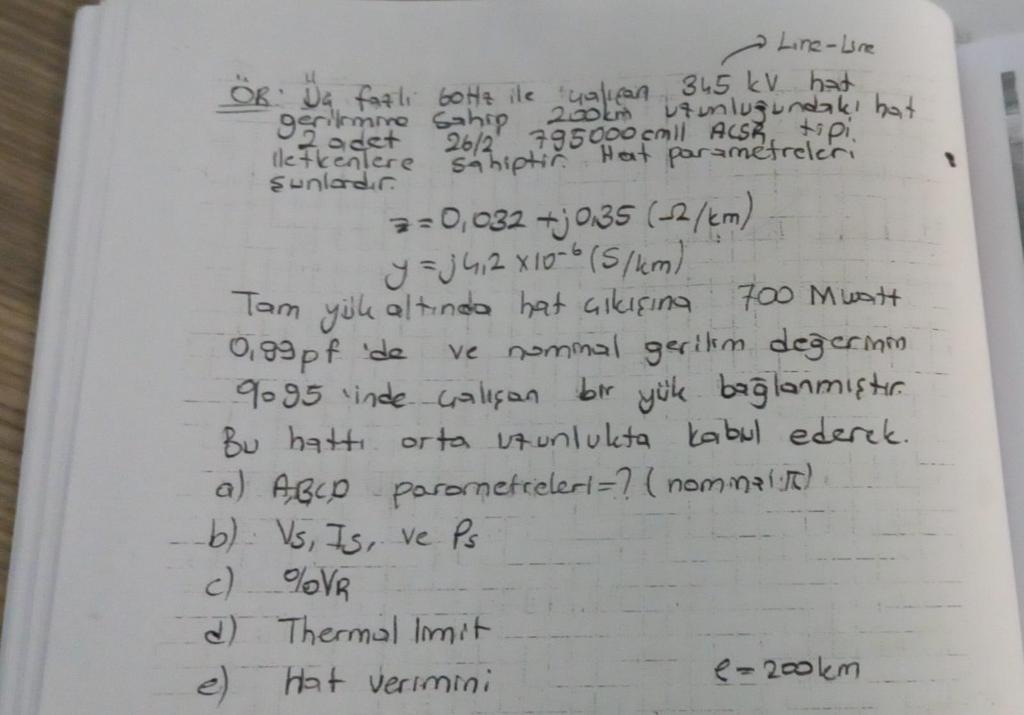 → Line-Line
ÖR: Üç fazlı 60Hz ile çalışan 345 kV hat
gerilimine sahip 200km uzunluğundaki hat
2 adet 26/2 795000cmil ACSR tipi
iletkenlere sahiptir. Hat parametreleri
şunlardır.
z = 0,032 + j0.35 (Ω/km)
y = j4,2 x10⁻⁶ (S/km)
Tam yük altında hat çıkışına 700 Mwatt
0,99 pf 'de ve nominal gerilim değerinin
%95 'inde çalışan bir yük bağlanmıştır.
Bu hattı orta uzunlukta kabul ederek.
a) A,B,C,D parametreleri=? (nominal π)
b) Vs, Is, ve Ps
c) %VR
d) Thermal limit
e) Hat verimini
l = 200km